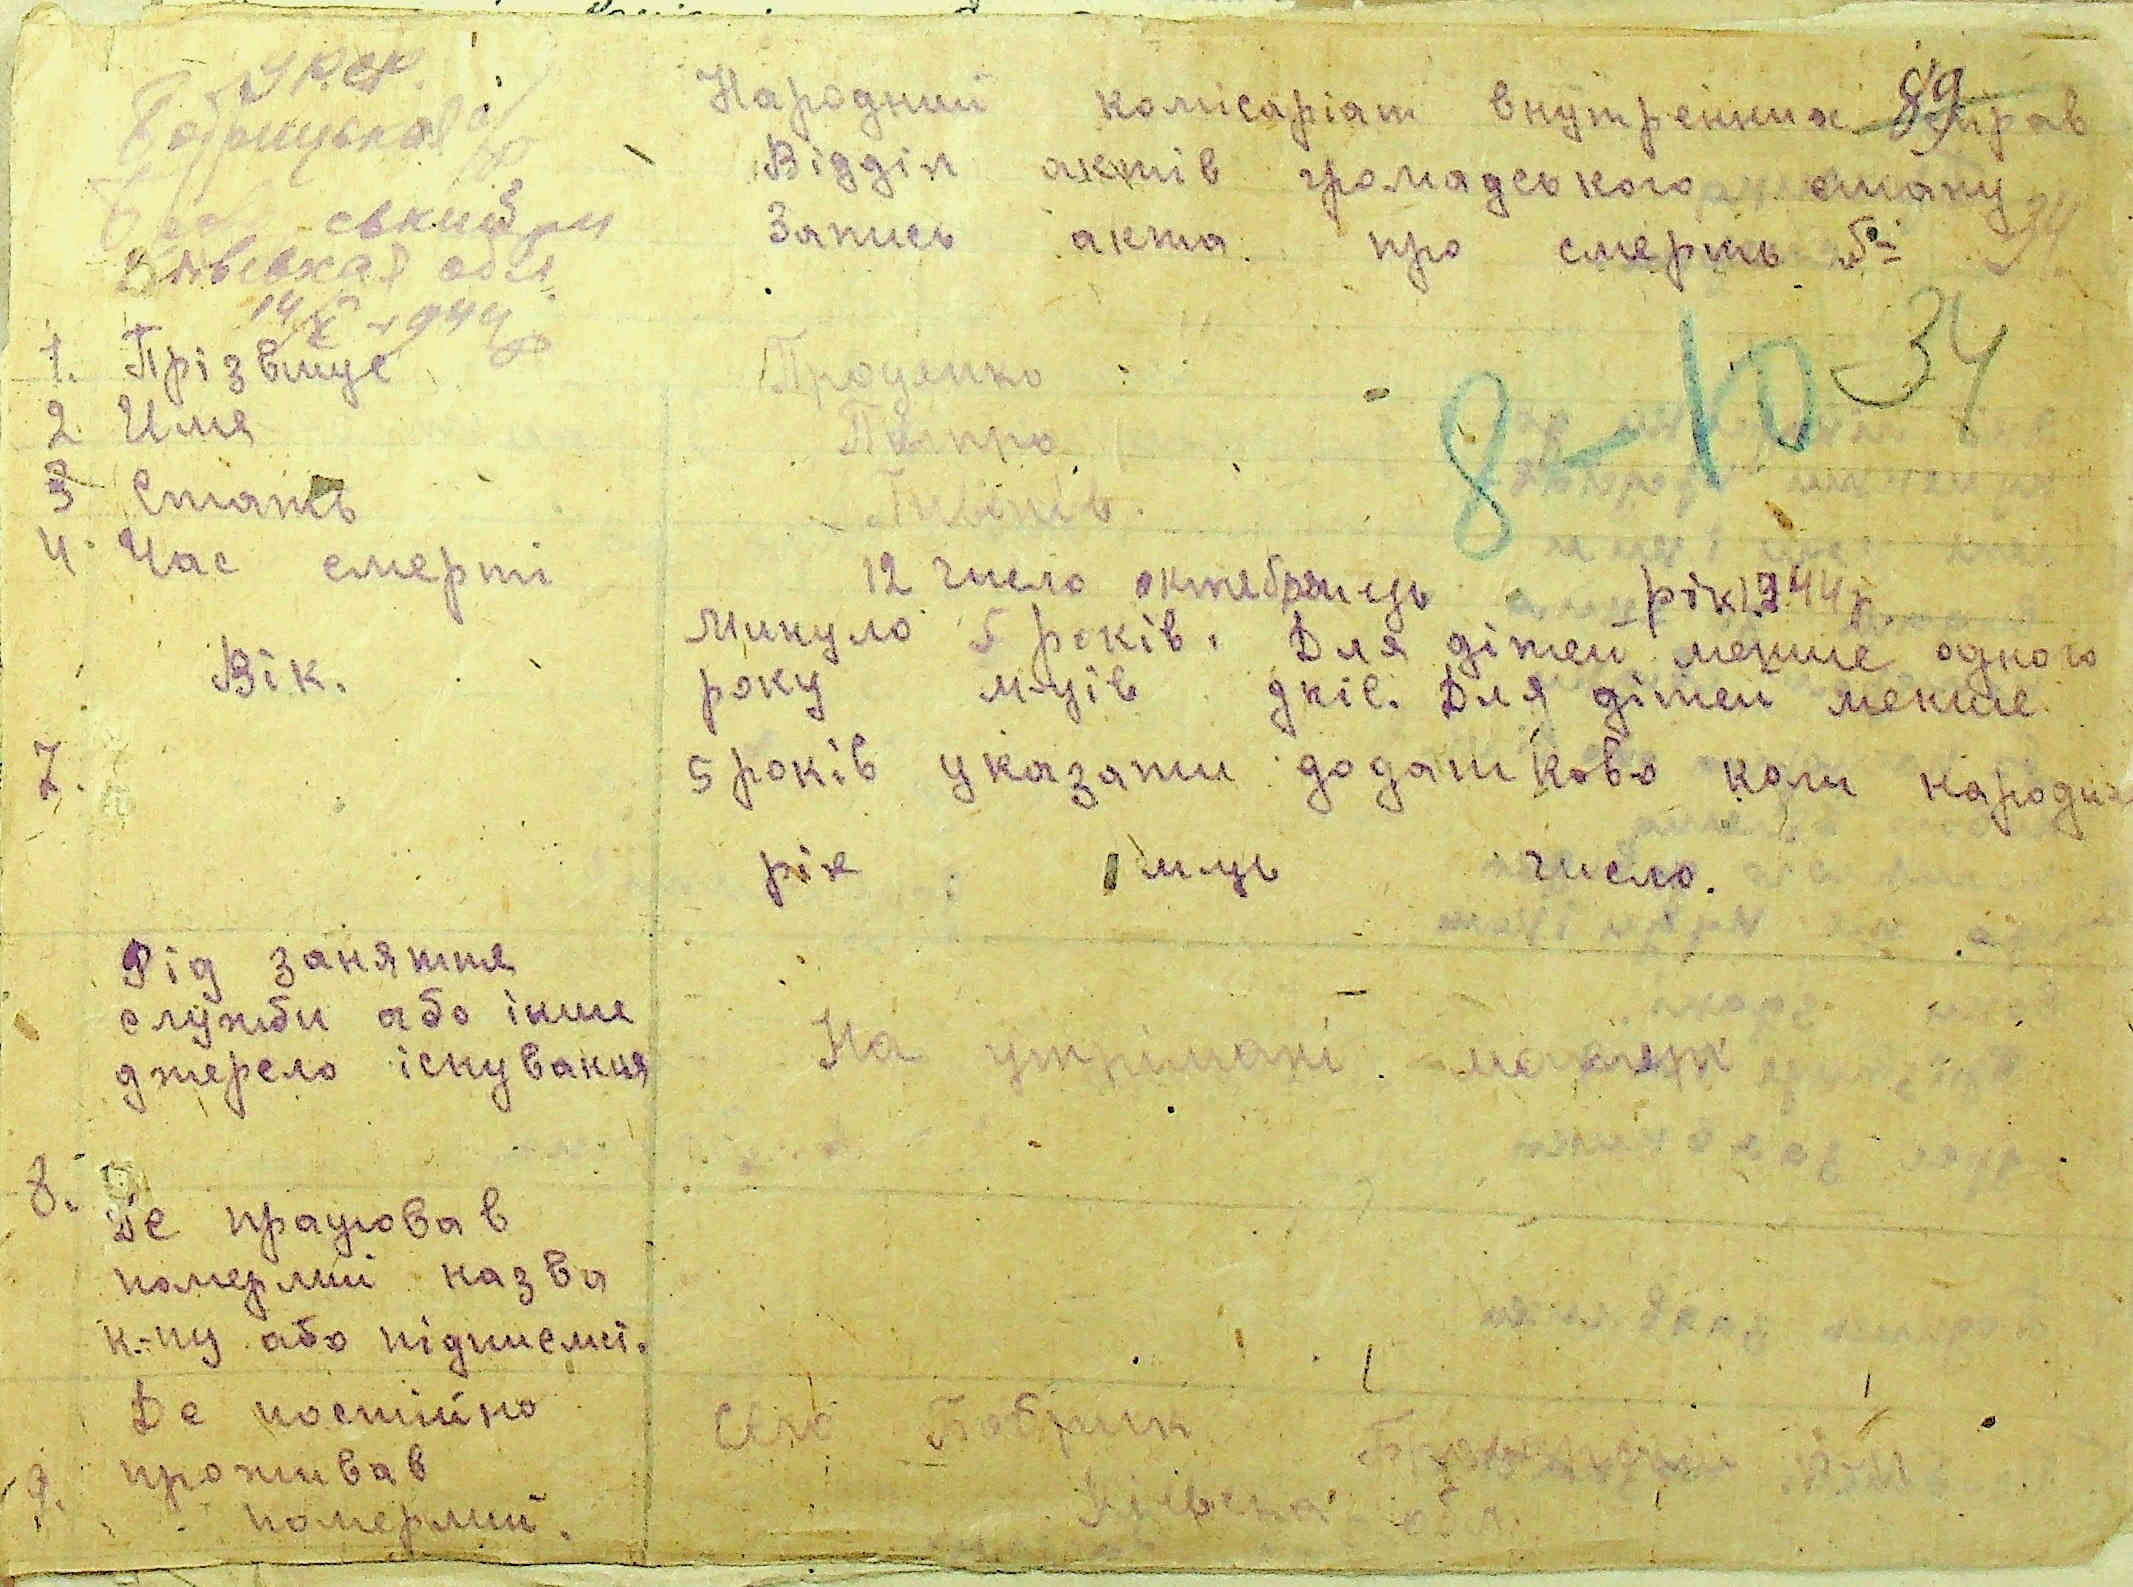 УРСР.
Бобрицька с/р
ський р-н
Київська обл
14/X 1944 р
89
Народний комісаріат внутренних справ
Відділ актів громадського стану
Запись акта про смерть № 34
8-10 34
1. Прізвище Проценко
2 Имя
3 Стать
4. Час смерті 12 число октября м-ць рік 1944
Вік. Минуло 5 років. Для дітей менше одного
року м-ців днів. Для дітей менше
7. 5 років указати додатково коли народи
рік м-ць число.
Рід заняття
служби або інше
джерело існування На утрімані матері
8. Де працював
померлий назва
к-пу або підписмі.
Де постійно Село Бобрик
9. проживав Київська обл.
померлий.